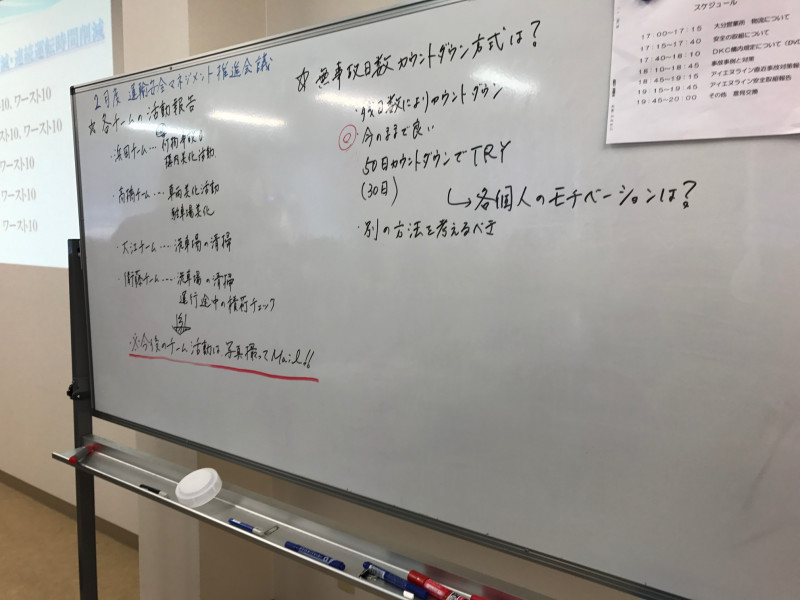 減・連続運転時間削減
10、ワースト10
10、ワースト10
ワースト10
ワースト10
ワースト10
2月度 運輸安全マネジメント推進会議
☆各チームの活動報告
・浜田チーム…荷物事故
構内美化活動
・高橋チーム…車両美化活動
駐車場美化
・大江チーム…洗車場の清掃
・衛藤チーム…洗車場の清掃
運行途中の積荷チェック
※今後のチーム活動は、写真撮ってMail!!
☆無事故日数カウントダウン方式は?
日数によりカウントダウン
◎今のままで良い
50日カウントダウンでTRY
(30日)
↳各個人のモチベーションは?
・別の方法を考えるべき
スケジュール
17:00~17:15 大分営業所 物流について
17:15~17:40 安全の取組について
17:40~18:10 DKC構内規定について(DV
18:10~18:45 事故事例と対策
18:45~19:15 アイエヌライン追突事故対策
19:15~19:45 アイエヌライン安全取組報告
19:45~20:00 その他 意見交換